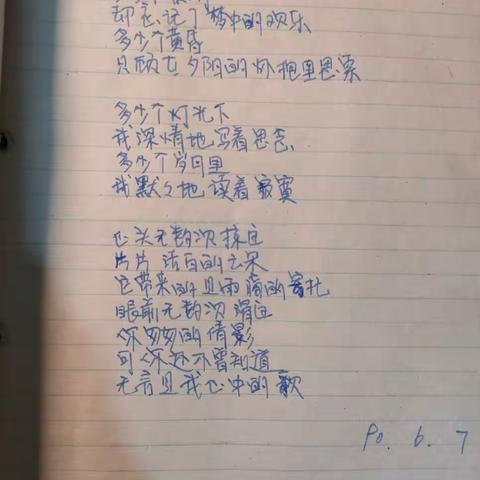 却忘记了梦中的欢乐
多少个黄昏
只顾在夕阳的怀抱里思索
多少个灯光下
我深情地写着思念
多少个岁月里
我默々地读着寂寞
心头无数次掠过
片片洁白的云朵
它带来的是雨滴的寄托
眼前无数次滑过
你匆匆的倩影
可你还不曾知道
无言是我心中的歌
90. 6. 7